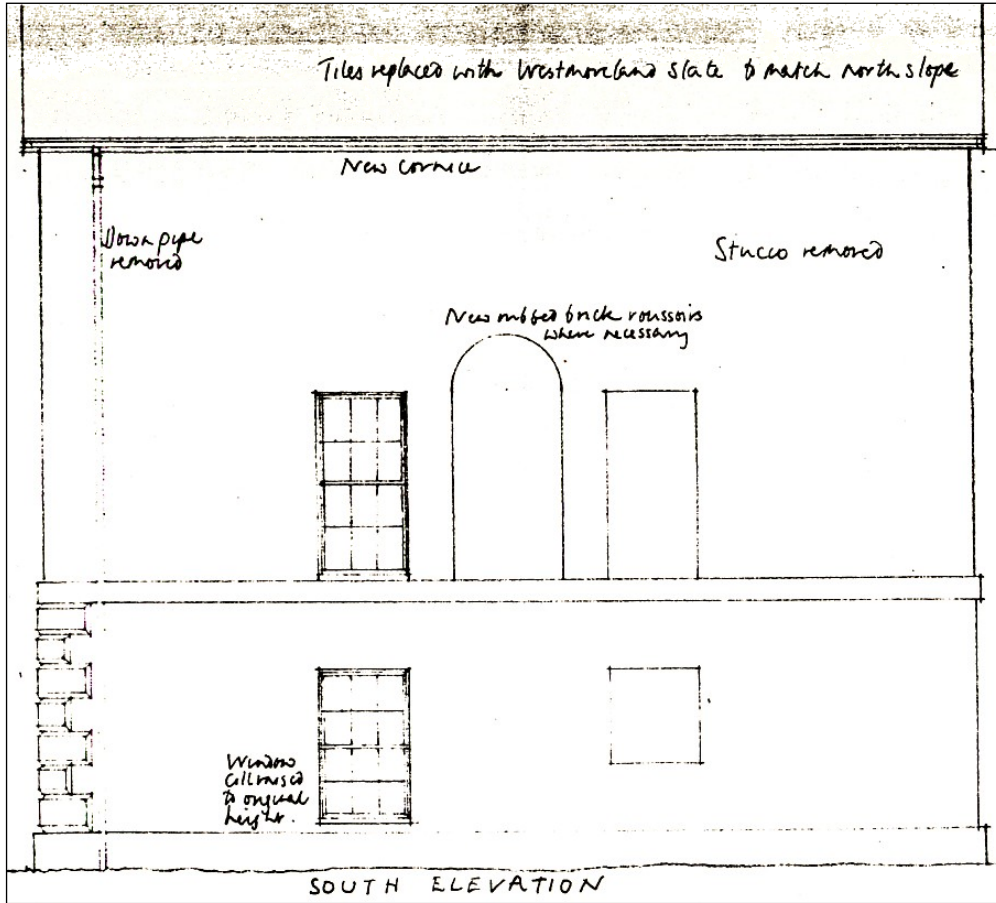 Tiles replaced with Westmoreland slate to match north slope
New cornice
Down pipe
removed
Stucco removed
New rubbed brick voussoirs
where necessary
Window
cill raised
to original
height.
SOUTH ELEVATION